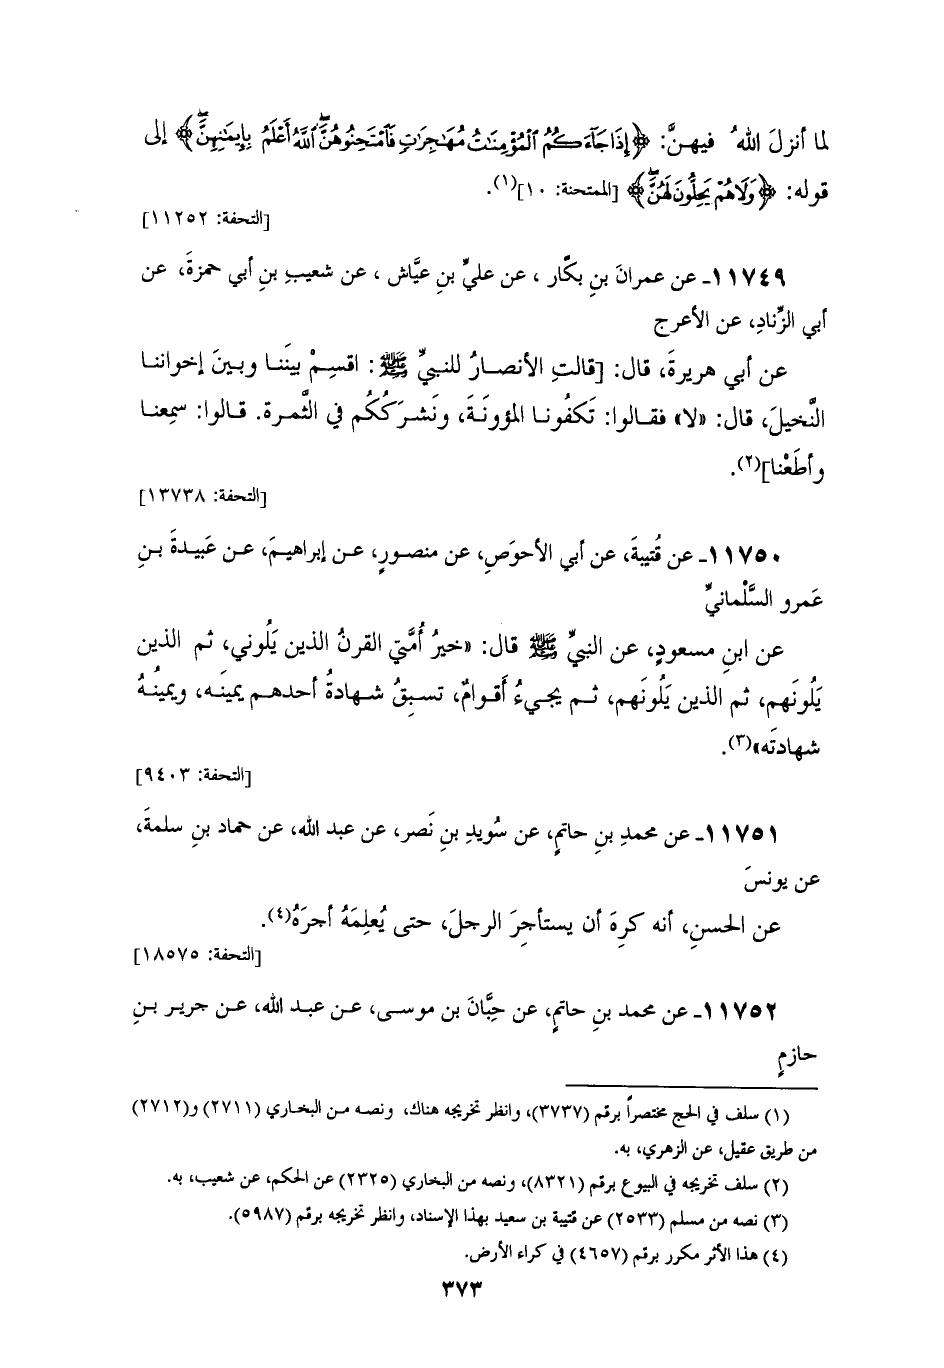 لما أنزلَ اللهُ فيهنَّ: ﴿إِذَا جَآءَكُمُ ٱلْمُؤْمِنَٰتُ مُهَٰجِرَٰتٍ فَٱمْتَحِنُوهُنَّ ۖ ٱللَّهُ أَعْلَمُ بِإِيمَٰنِهِنَّ ۖ﴾ إلى
قوله: ﴿وَلَا هُمْ يَحِلُّونَ لَهُنَّ ۖ﴾ [الممتحنة: ١٠](١).
[التحفة: ١١٢٥٢]
١١٧٤٩ـ عن عمرانَ بنِ بكَّار ، عن عليِّ بنِ عيَّاش ، عن شعيبِ بنِ أبي حمزةَ، عن
أبي الزِّنادِ، عن الأعرج
عن أبي هريرةَ، قال: [قالتِ الأنصارُ للنبيِّ ﷺ: اقسِمْ بينَنا وبينَ إخواننا
النَّخيلَ، قال: «لا» فقالوا: تَكفُونا المؤونَةَ، ونَشرَكُكُم في الثَّمرة. قالوا: سمِعنا
وأطَعْنا](٢).
[التحفة: ١٣٧٣٨]
١١٧٥٠ـ عن قُتيبةَ، عن أبي الأحوَصِ، عن منصورٍ، عن إبراهيمَ، عن عَبيدةَ بنِ
عَمرو السَّلْمانيِّ
عن ابنِ مسعودٍ، عن النبيِّ ﷺ قال: «خيرُ أُمَّتي القرنُ الذين يَلُوني، ثم الذين
يَلُونَهم، ثم الذين يَلُونَهم، ثم يجيءُ أَقوامٌ، تسبِقُ شهادةُ أحدهم يمينَه، ويمينُهُ
شهادتَه»(٣).
[التحفة: ٩٤٠٣]
١١٧٥١ـ عن محمدِ بنِ حاتمٍ، عن سُويدِ بنِ نَصر، عن عبد الله، عن حماد بنِ سلمةَ،
عن يونسَ
عن الحسنِ، أنه كرِهَ أن يستأجِرَ الرجلَ، حتى يُعلِمَهُ أجرَهُ(٤).
[التحفة: ١٨٥٧٥]
١١٧٥٢ـ عن محمد بنِ حاتمٍ، عن حِبَّانَ بن موسى، عن عبد الله، عن جرير بنِ
حازمٍ
(١) سلف في الحج مختصراً برقم (٣٧٣٧)، وانظر تخريجه هناك، ونصه من البخاري (٢٧١١) و(٢٧١٢)
من طريق عقيل، عن الزهري، به.
(٢) سلف تخريجه في البيوع برقم (٨٣٢١)، ونصه من البخاري (٢٣٢٥) عن الحكم، عن شعيب، به.
(٣) نصه من مسلم (٢٥٣٣) عن قتيبة بن سعيد بهذا الإسناد، وانظر تخريجه برقم (٥٩٨٧).
(٤) هذا الأثر مكرر برقم (٤٦٥٧) في كراء الأرض.
٣٧٣